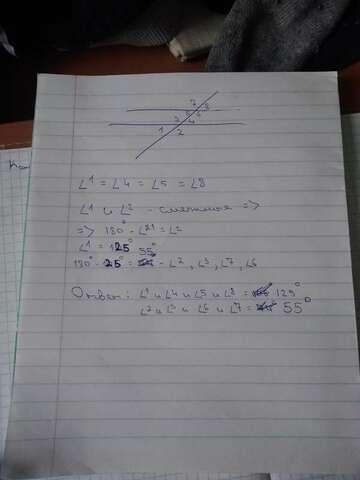 7 8
5 6
3 4
1 2
∠1 = ∠4 = ∠5 = ∠8
∠1 и ∠2 - смежные =>
=> 180° - ∠1 = ∠2
∠1 = 125°
180° - 125° = 55° - ∠2, ∠3, ∠7, ∠6
Ответ: ∠1 и ∠4 и ∠5 и ∠8 = 125°
∠2 и ∠3 и ∠6 и ∠7 = 55°